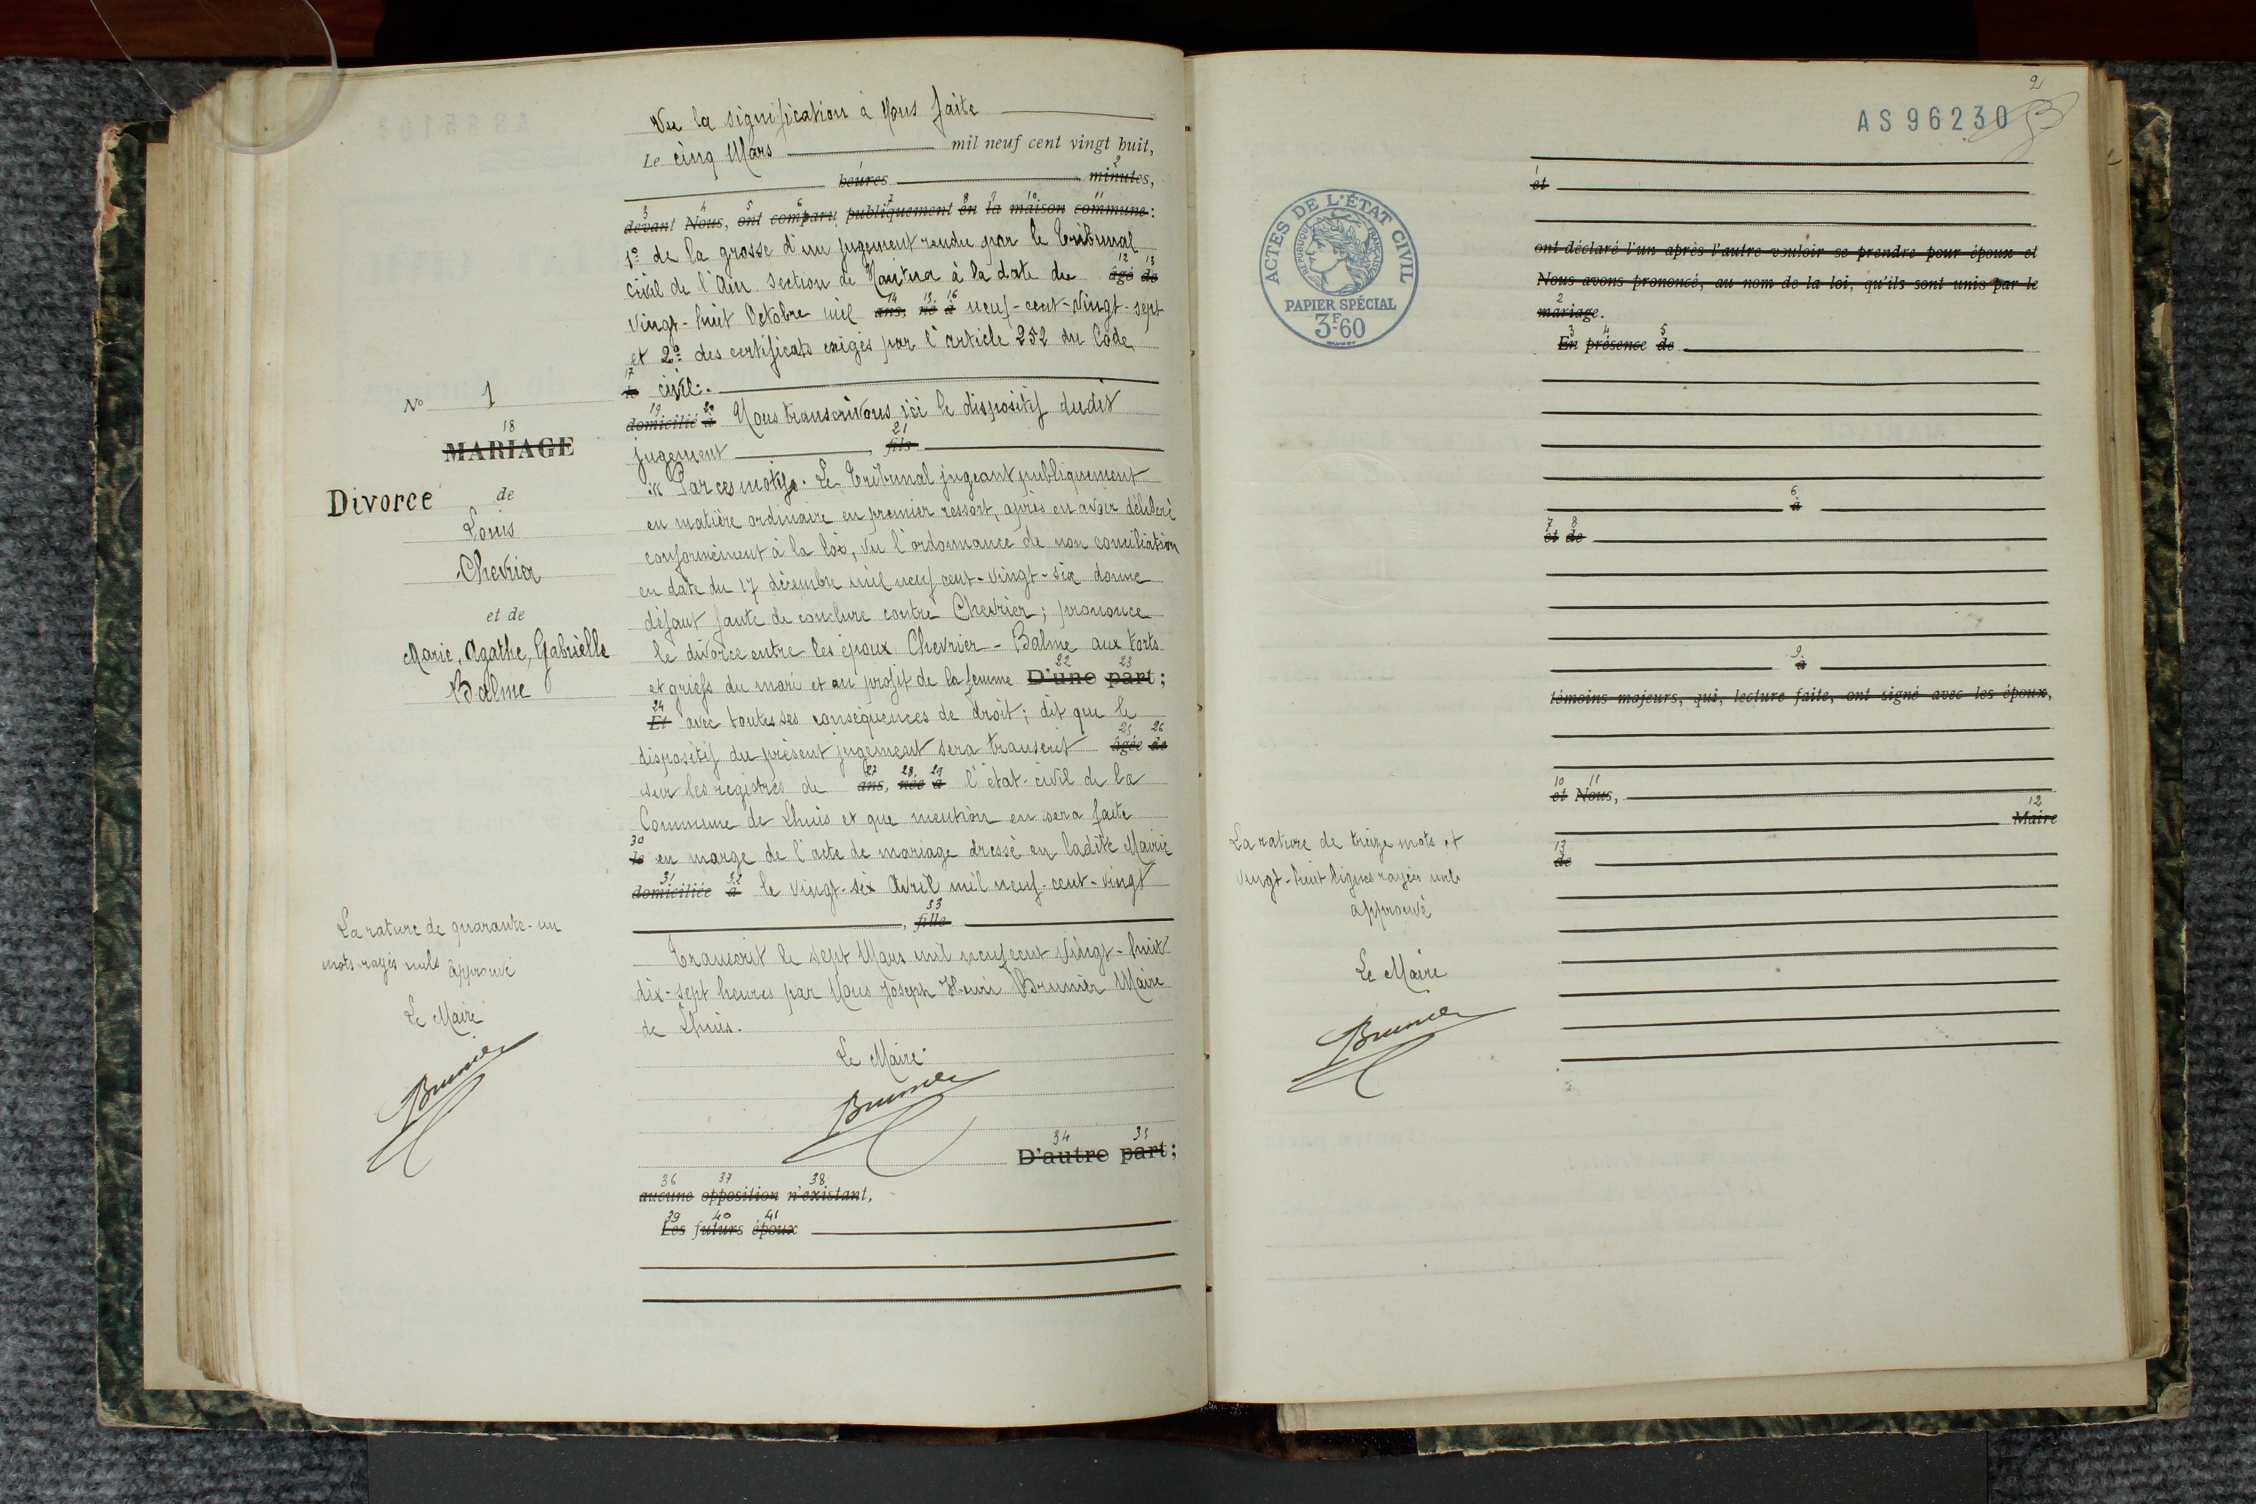 Vu la signification à Nous faite
Le cinq Mars mil neuf cent vingt huit,
heures minutes, 2
3 4 5 6 7 8 9 10 11
devant Nous, ont comparu publiquement en la maison commune :
1º de la grosse d'un jugement rendu par le Tribunal
civil de l'Ain section de Nantua à la date du âgé 12 de 13
vingt-huit Octobre mil ans, 14 né 15 à 16 neuf-cent-vingt-sept
et 2º des certificats exigés par l'article 252 du Code
17 le civil.
19 20
domicilié à Nous transcrivons ici le dispositif dudit
jugement , fils 21
"Par ces motifs. Le Tribunal jugeant publiquement
en matière ordinaire en premier ressort, après en avoir délibéré
conformément à la loi, vu l'ordonnance de non conciliation
en date du 17 décembre mil neuf cent-vingt-six donne
défaut faute de conclure contre Chevrier ; prononce
le divorce entre les époux Chevrier - Balme aux torts
et griefs du mari et au profit de la femme D'une 22 part 23 ;
24 Et avec toutes ses conséquences de droit ; dit que le
dispositif du présent jugement sera transcrit âgée 25 de 26
sur les registres de ans, 27 née 28 à 29 l'état-civil de la
Commune de Lhuis et que mention en sera faite
30 le en marge de l'acte de mariage dressé en ladite Mairie
31 32
domiciliée à le vingt-six Avril mil neuf-cent-vingt
, fille 33
Transcrit le sept Mars mil neuf cent vingt-huit
dix-sept heures par Nous Joseph Henri Brunier Maire
de Lhuis.
Le Maire
Brunier
34 35
D'autre part ;
36 37 38
aucune opposition n'existant,
39 40 41
Les futurs époux
Nº 1
18
MARIAGE
Divorce de
Louis
Chevrier
et de
Marie, Agathe, Gabrielle
Balme
La rature de quarante-un
mots rayés nuls approuvé
Le Maire
Brunier
2
AS96230
ACTES DE L'ÉTAT CIVIL
RÉPUBLIQUE FRANÇAISE
PAPIER SPÉCIAL
3F.60
1
et
ont déclaré l'un après l'autre vouloir se prendre pour époux et
Nous avons prononcé, au nom de la loi, qu'ils sont unis par le
2
mariage.
3 4 5
En présence de
6
à
7 8
et de
9
à
témoins majeurs, qui, lecture faite, ont signé avec les époux,
10 11
et Nous,
12
Maire
13
de
La rature de treize mots et
vingt-huit lignes rayées nuls
approuvé
Le Maire
Brunier